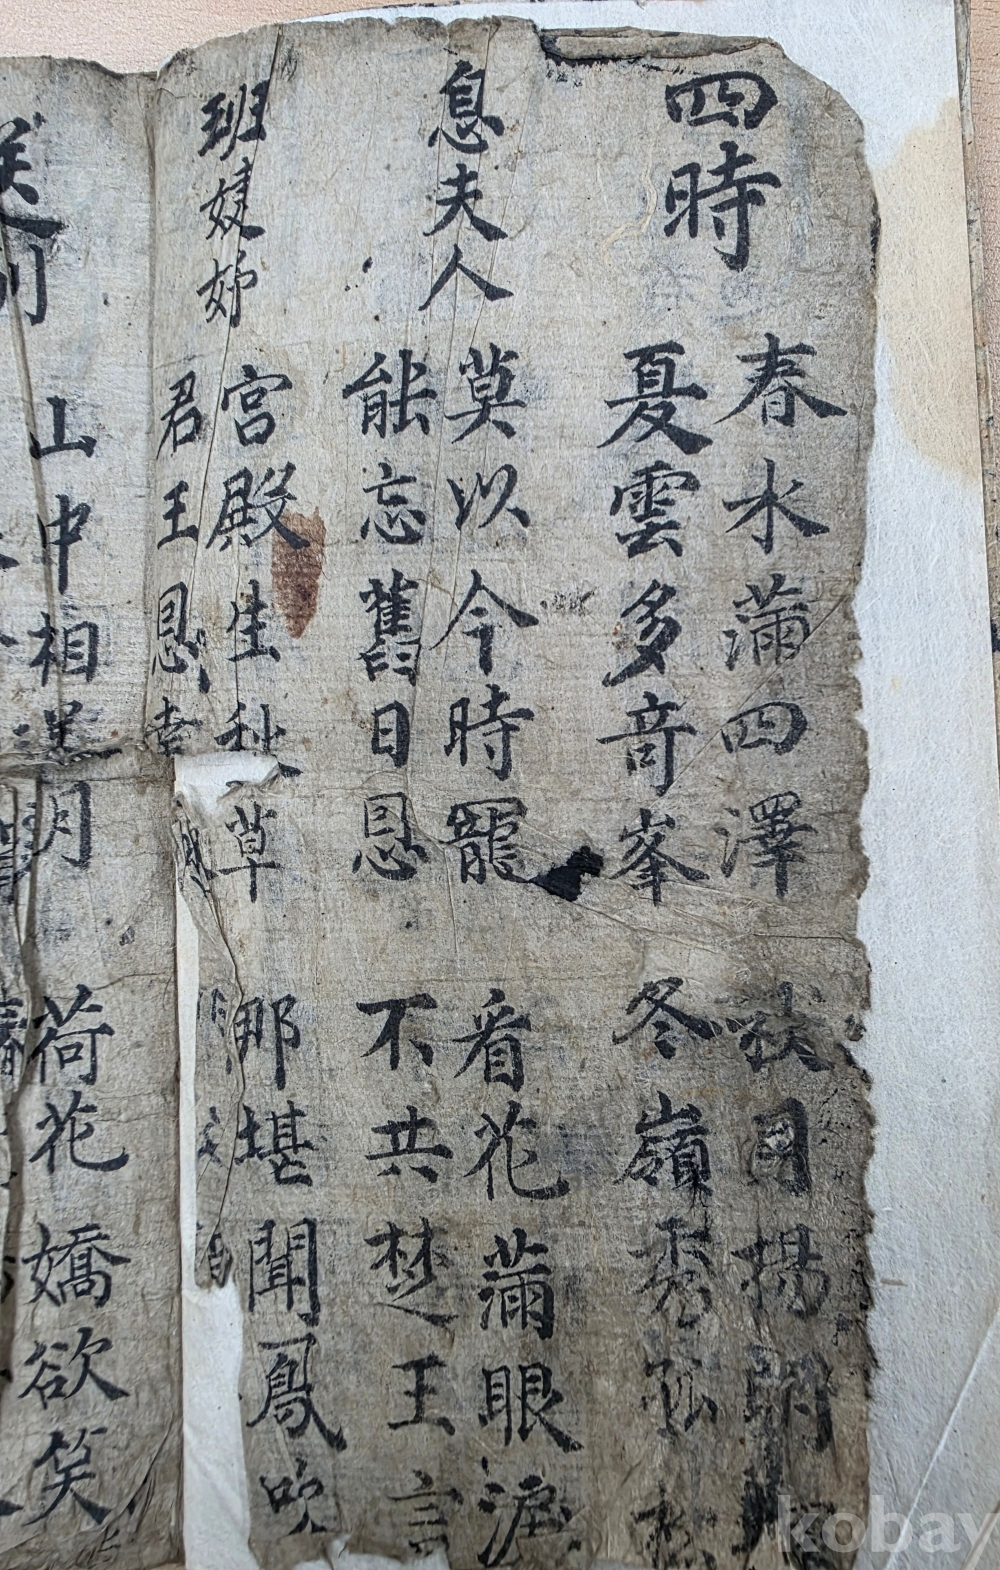 四時
春水滿四澤 秋月揚明
夏雲多奇峯 冬嶺秀孤松
息夫人
莫以今時寵 看花滿眼淚
能忘舊日恩 不共楚王言
班婕妤
宮殿生秋草 那堪聞鳳吹
君王恩幸
送別
山中相 月
荷花嬌欲笑
kobay